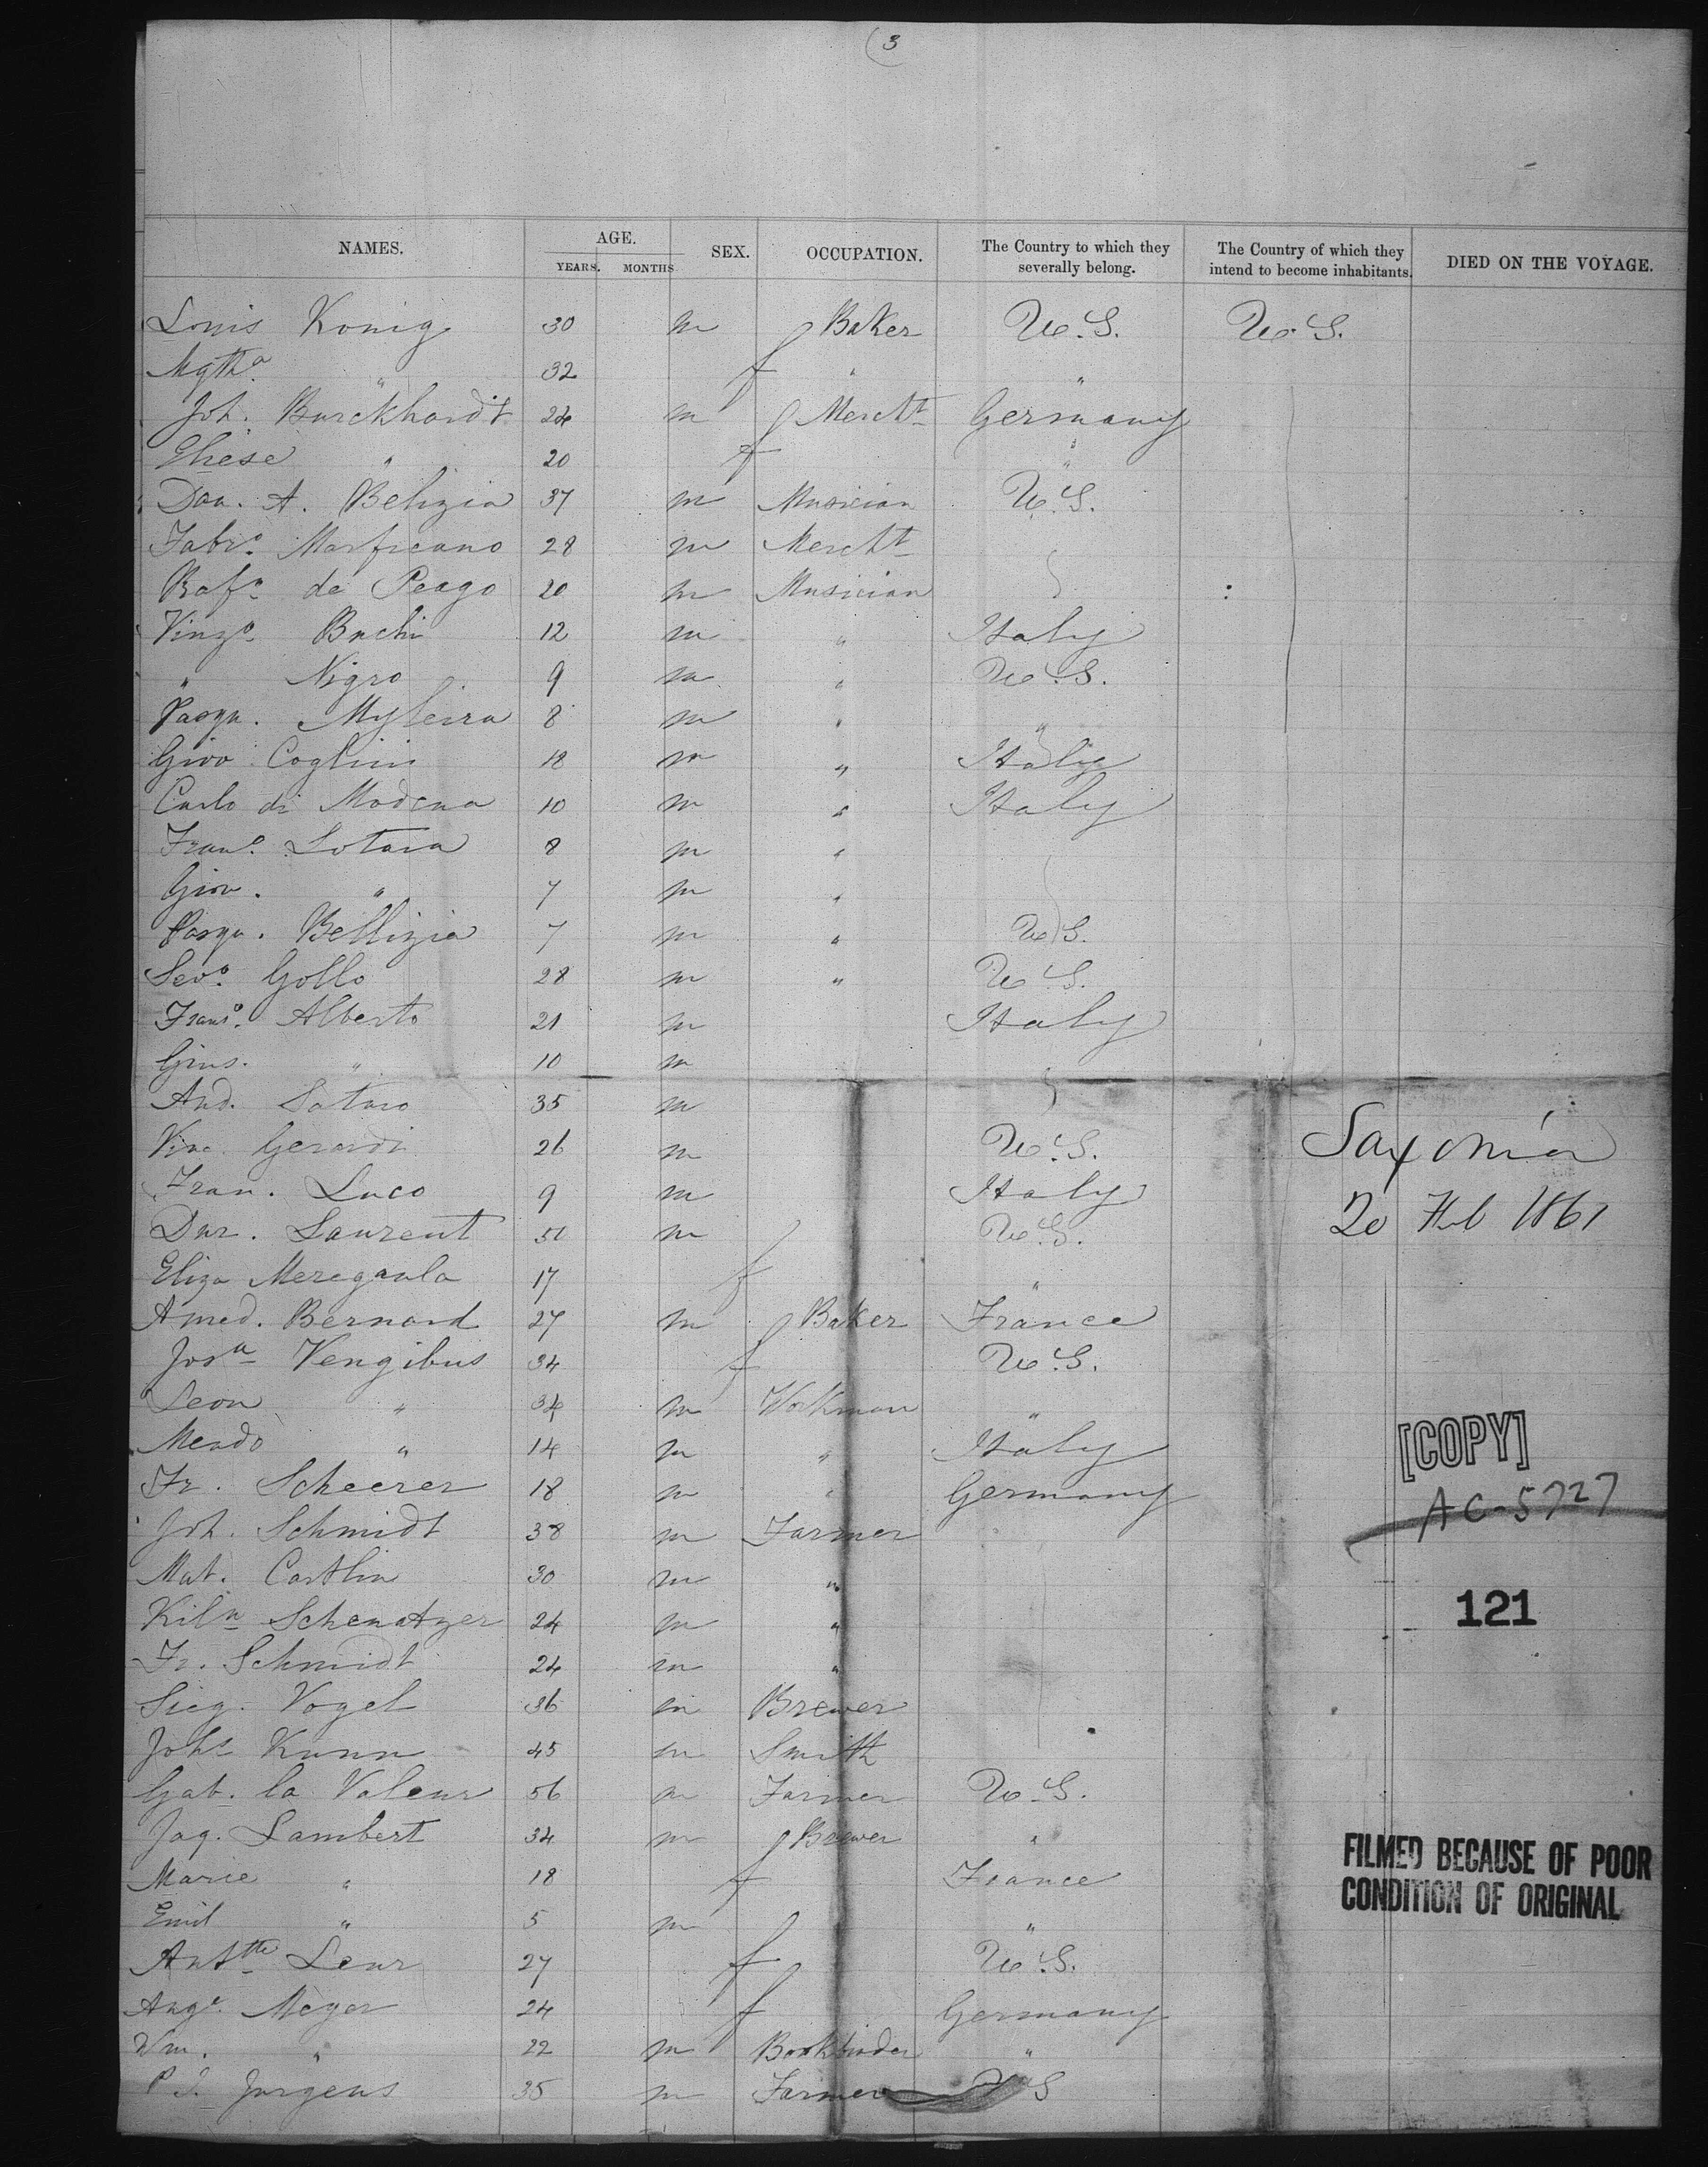 (3
NAMES. AGE. YEARS. MONTHS SEX. OCCUPATION. The Country to which they severally belong. The Country of which they intend to become inhabitants. DIED ON THE VOYAGE.
Louis Konig 30 m Baker U.S. U.S.
Mgtha " 32 f " "
Joh. Burckhardt 24 m Mercht Germany
Eliese " 20 f "
Don. A. Belizia 37 m Musician U.S.
Fabro. Marficano 28 m Mercht
Rafo de Peago 20 m Musician
Vinzo Buchi 12 m " Italy
" Nigro 9 m " U.S.
Pasqu. Myleira 8 m " "
Giov Coglini 18 m " Italy
Carlo di Modena 10 m " Italy
Frano. Lotara 8 m "
Giov. " 7 m "
Pasqu. Bellizia 7 m " U.S.
Sevo. Gollo 28 m " U.S.
Franso. Alberto 21 m Italy
Gius. " 10 m
And. Sotaro 35 m
Vinc. Gerardi 26 m U.S.
Fran. Luco 9 m Italy
Dur. Laurent 51 m U.S.
Eliza Meregaula 17 f "
Amed. Bernard 27 m Baker France
Josa Vengibus 34 f U.S.
Leon " 34 m Workman "
Mendo " 14 m " Italy
Fr. Scheerer 18 m " Germany
Joh. Schmidt 38 m Farmer
Mat. Castlin 30 m "
Kiln Schenatzer 24 m "
Fr. Schmidt 24 m "
Sieg. Vogel 36 m Brewer
Johs Kunn 45 m Smith
Gab. la Valeur 56 m Farmer U.S.
Jaq. Lambert 34 m Brewer "
Marie " 18 f France
Emil " 5 m "
Anttte Leur 27 f U.S.
Auge. Meyer 24 f Germany
Wm. " 22 m Bookbinder "
P J. Jurgens 35 m Farmer U S
Saxonia
20 Feb 1861
[COPY]
AC-5727
121
FILMED BECAUSE OF POOR
CONDITION OF ORIGINAL